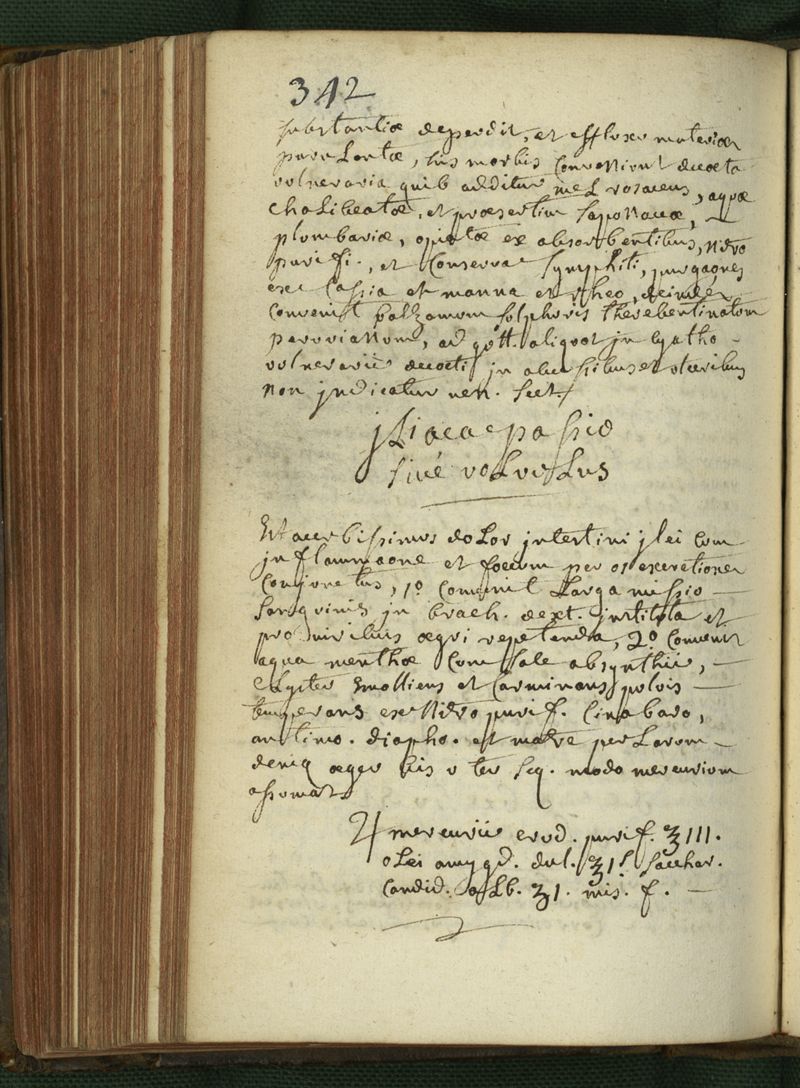 342
substantiæ deperdit, et effluxu materiæ
purulentæ, his morbis conveniunt decocta
vulneraria quib additur mel rosaceus, aquæ
chalibeatæ, et præsertim saponaceæ, —
plombariæ, opiatæ ex absorbentibus, nitro
purifi., et conserva symphiti, purgaones
exe cassia et manna et rheo, deinde —
convenit balzamum sulphuris therebentinatom
peruvianum, ad gutt. aliquot in cyatho —
vulnerarii decocti in abscessibus et ulceribus
non judicatur ven. sect.
jliaca passio
sive volvulus
Est acerbissimus dolor jntestini jlei com
jnflammaone et foecum per os excretione
conjunctus, 1º convenit larga missio —
sanguinis jn brach. dext. jnstituta et
pro viribus ægri repetenda, 2º convenit
aqua menthæ com sale absynthii, —
clyster emolliens et carminans pulvis —
temperans exe nitro purif. cinabaro,
antimo. diapho. et matre perlarum —
deniq æger bis v ter seq. modo mercuriom
assumat
♃ mercurii crud. purif. ʒ III.
olei amygd. dul. ʒ Iſ sacchar.
candid. alb. ʒ I. mis. f. —